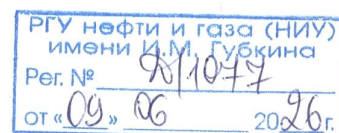 РГУ нефти и газа (НИУ)
имени И.М. Губкина
Рег. № Д/1077
от «09» 06 2026г.